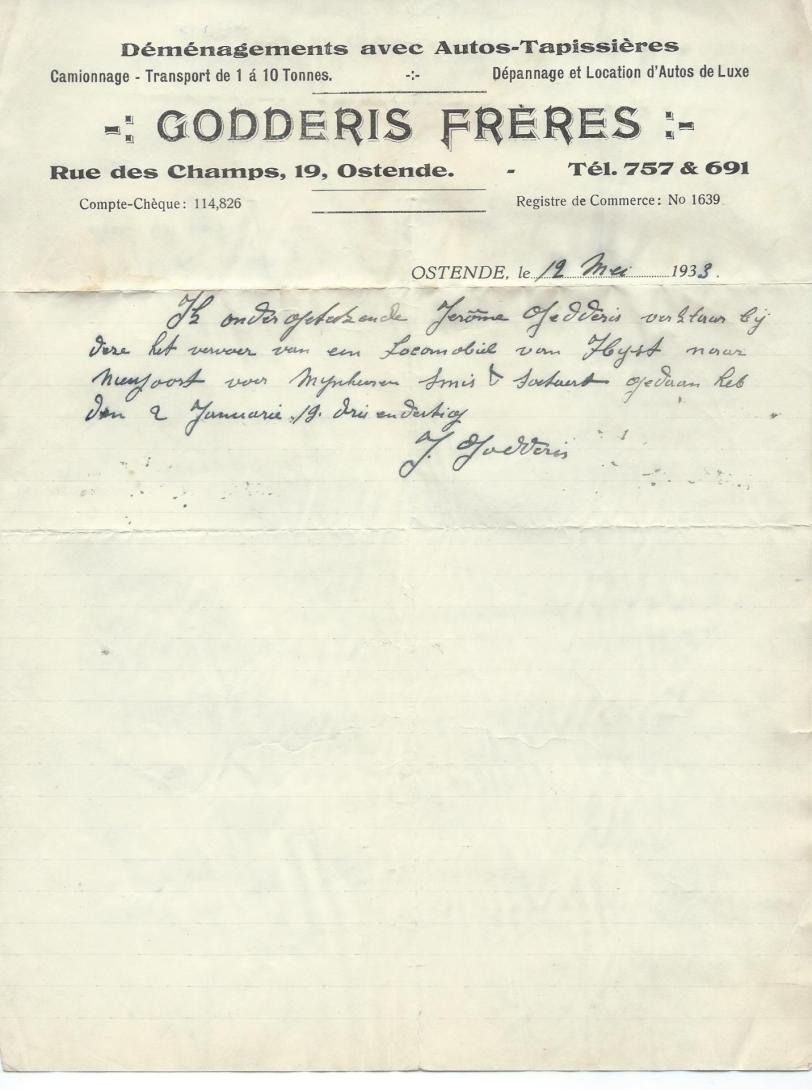 Déménagements avec Autos-Tapissières
Camionnage - Transport de 1 á 10 Tonnes. -:- Dépannage et Location d'Autos de Luxe
-: GODDERIS FRÈRES :-
Rue des Champs, 19, Ostende. - Tél. 757 & 691
Compte-Chèque: 114,826 Registre de Commerce: No 1639
OSTENDE, le 12 Mei 1933.
Ik ondergetekende Jerôme Godderis verklaar bij
deze het vervoer van een Locomobiel van Heyst naar
Nieupoort voor Mijnheeren Smis & Soetaert gedaan heb
den 2 Januarie 19. drie en dertig
J. Godderis